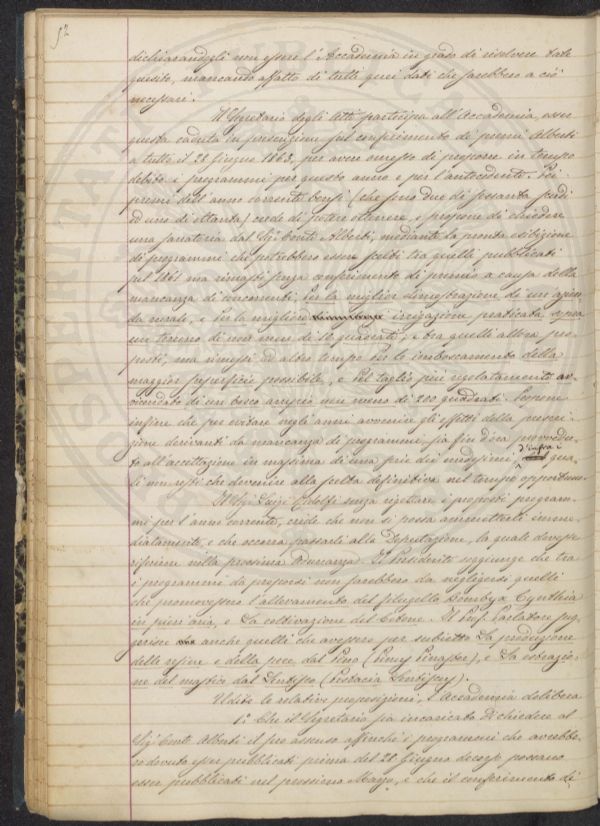 52
dichiarandogli non essere l'Accademia in grado di risolvere tale
quesito, mancando affatto di tutti quei dati che sarebbero a ciò
necessari.
Il Segretario degli Atti partecipa all'Accademia, esser
questa caduta in prescrizione sul conferimento di premi Alberti
a tutto il 28 Giugno 1863, per avere omesso di proporre in tempo
debito i programmi per questo anno e per l'antecedente. Pei
premi dell'anno corrente bensì (che sono due di sessanta scudi
ed uno di ottanta) crede di potere ottenere, e propone di chiedere
una sanatoria dal Sigr. Conte Alberti, mediante la pronta esibizione
di programmi che potrebbero essere scelti tra quelli pubblicati
pel 1861 ma rimasti senza conferimento di premio a causa della
mancanza di concorrenti, per la miglior dimostrazione di un'azien-
da rurale, e per la migliore irrigazione praticata sopra
un terreno di non men di 10 quadrati; e tra quelli allora pro-
posti, ma rimessi ad altro tempo per lo imboscamento della
maggior superficie possibile, e pel taglio più regolatamente av-
vicendato di un bosco ampio non meno di 200 quadrati. Propone
infine che per evitare negli anni avvenire gli effetti della prescri-
zione derivanti da mancanza di programmi, sia fin d'ora provvedu-
to all'accettazione in massima di una serie dei medesimi, dai qua-
li non resti che devenire alla scelta definitiva nel tempo opportuno.
Il Sigr. Luigi Ridolfi senza rigettare i proposti program-
mi per l'anno corrente, crede che non si possa ammetterli imme-
diatamente, e che occorra passarli alla Deputazione, la quale dovesse
riferirne nella prossima Adunanza. Il Presidente soggiunge che tra
i programmi da proporsi non sarebbero da negligersi quelli
che promovessero l'allevamento del filugello Bombyx Cynthia
in pien'aria, e la coltivazione del Cotone. Il Prof. Parlatore sug-
gerisce anche quelli che avessero per subietto la produzione
delle resine e della pece dal Pino (Pinus Pinaster), e la estrazio-
ne del mastice dal Lentisco (Pistacia Lentiscus).
Udite le relative proposizioni, l'Accademia delibera
1.º Che il Segretario sia incaricato di chiedere al
Sigr. Conte Alberti il suo assenso affinchè i programmi che avrebbe-
ro dovuto esser pubblicati prima del 28 Giugno decorso possano
esser pubblicati nel prossimo Marzo, e che il conferimento di